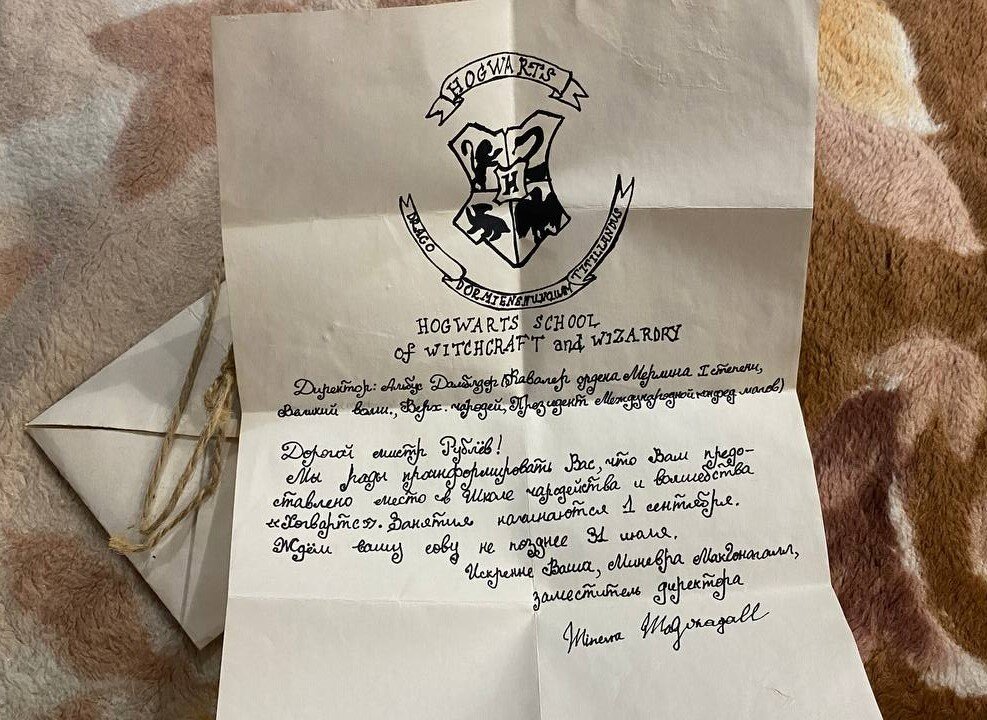 HOGWARTS
H
DRACO DORMIENS NUNQUAM TITILLANDUS
HOGWARTS SCHOOL
of WITCHCRAFT and WIZARDRY
Директор: Альбус Дамблдор (Кавалер ордена Мерлина I степени,
Великий волш., Верх. чародей, Президент Международной конфед. магов)
Дорогой мистр Рублёв!
Мы рады проинформировать Вас, что Вам предо-
ставлено место в Школе чародейства и волшебства
«Хогвартс». Занятия начинаются 1 сентября.
Ждём вашу сову не позднее 31 июля.
Искренне Ваша, Миневра Макдонагалл,
заместитель директора
Minerva McGonagall